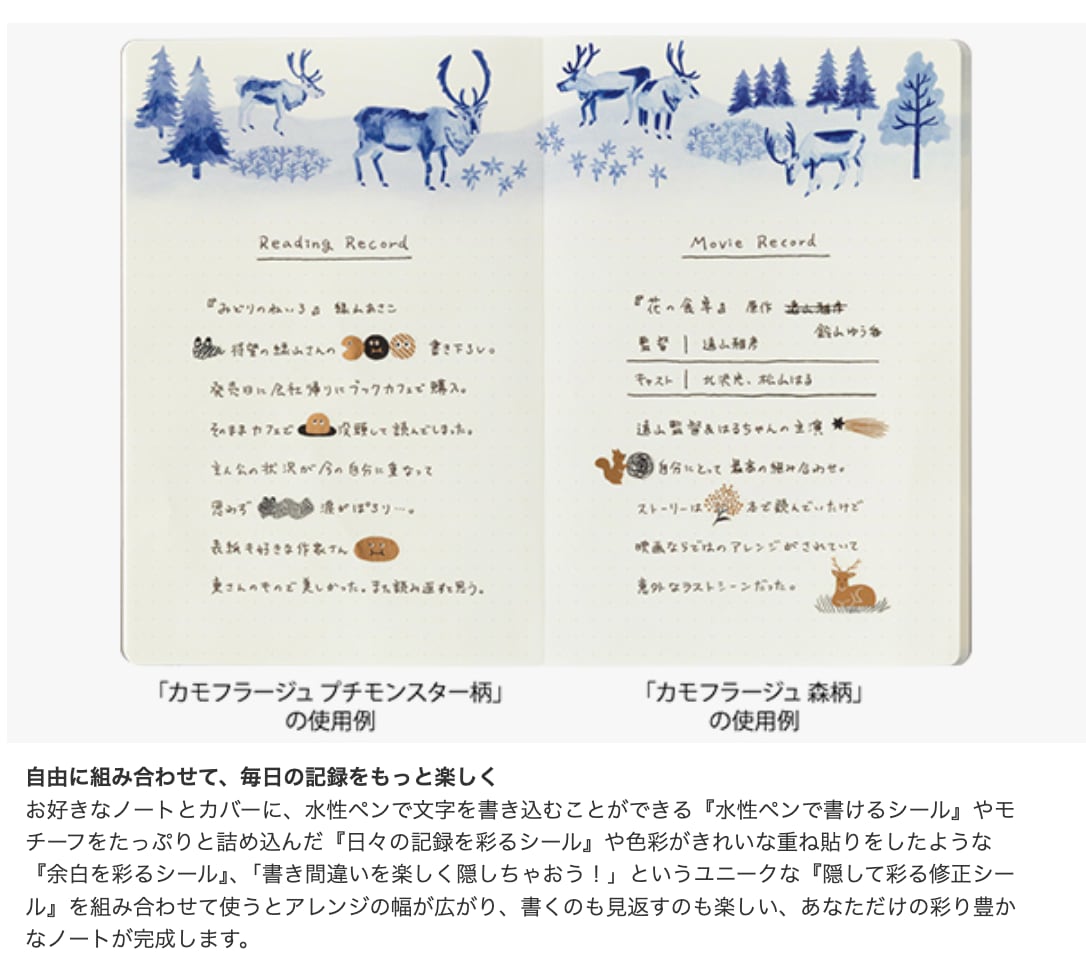 Reading Record
『みどりのねいろ』 緑山あさこ
待望の緑山さんの 書き下ろし。
発売日に会社帰りにブックカフェで購入。
そのままカフェで 没頭して読んでしまった。
主人公の状況が今の自分に重なって
思わず 涙がぽろり…。
表紙も好きな作家さん
東さんのもので美しかった。また読み返すと思う。
Movie Record
『花の食卓』 原作 遠山雅彦
鈴山ゆう
監督 | 遠山雅彦
キャスト | 北沢光、松山はる
遠山監督&はるちゃんの主演
自分にとって最高の組み合わせ。
ストーリーは 本で読んでいたけど
映画ならではのアレンジがされていて
意外なラストシーンだった。
「カモフラージュ プチモンスター柄」
の使用例
「カモフラージュ 森柄」
の使用例
自由に組み合わせて、毎日の記録をもっと楽しく
お好きなノートとカバーに、水性ペンで文字を書き込むことができる『水性ペンで書けるシール』やモ
チーフをたっぷりと詰め込んだ『日々の記録を彩るシール』や色彩がきれいな重ね貼りをしたような
『余白を彩るシール』、「書き間違いを楽しく隠しちゃおう！」というユニークな『隠して彩る修正シー
ル』を組み合わせて使うとアレンジの幅が広がり、書くのも見返すのも楽しい、あなただけの彩り豊か
なノートが完成します。